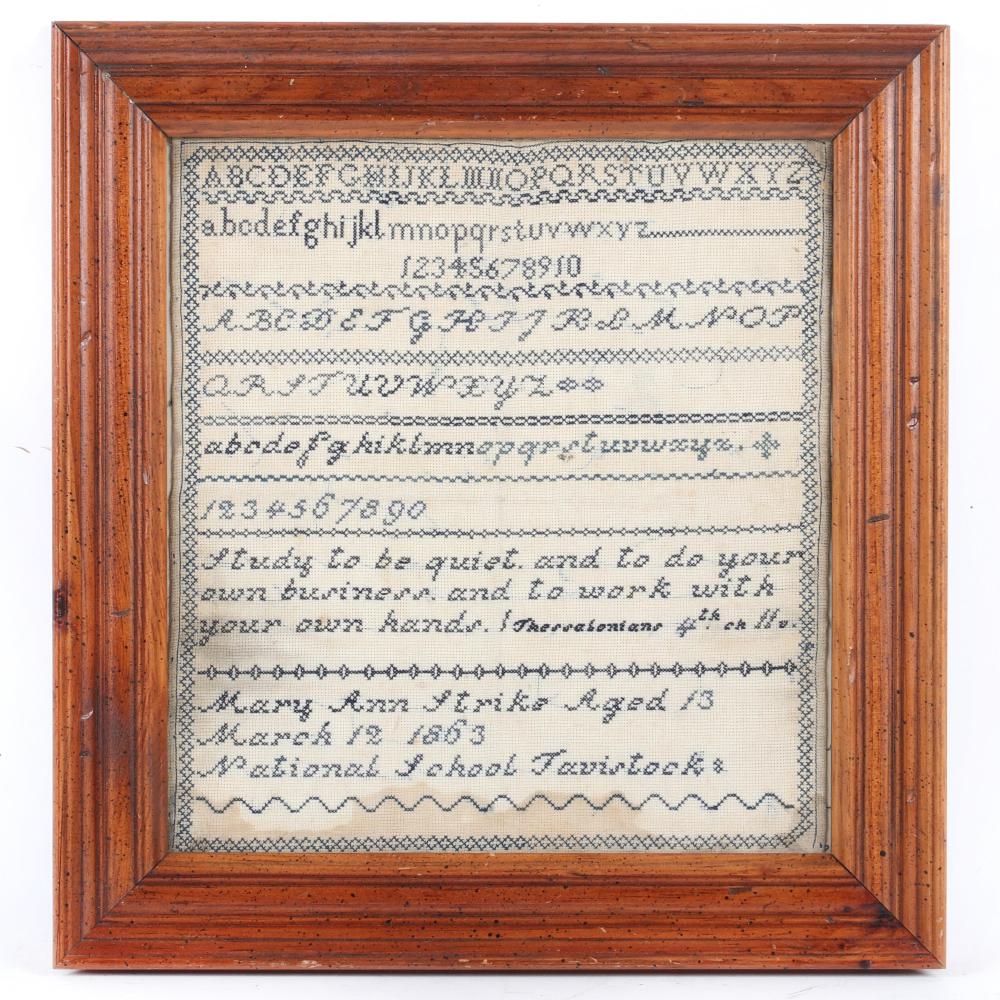 ABCDEFGHIJKLMNOPQRSTUVWXYZ
abcdefghijklmnopqrstuvwxyz
12345678910
ABCDEFGHIJKLMNOP
QRSTUVWXYZ
abcdefghiklmnopqrstuvwxyz.
1234567890
Study to be quiet. and to do your
own business. and to work with
your own hands. 1 Thessalonians 4th. ch 11v.
Mary Ann Strike Aged 13
March 12 1863
National School Tavistock